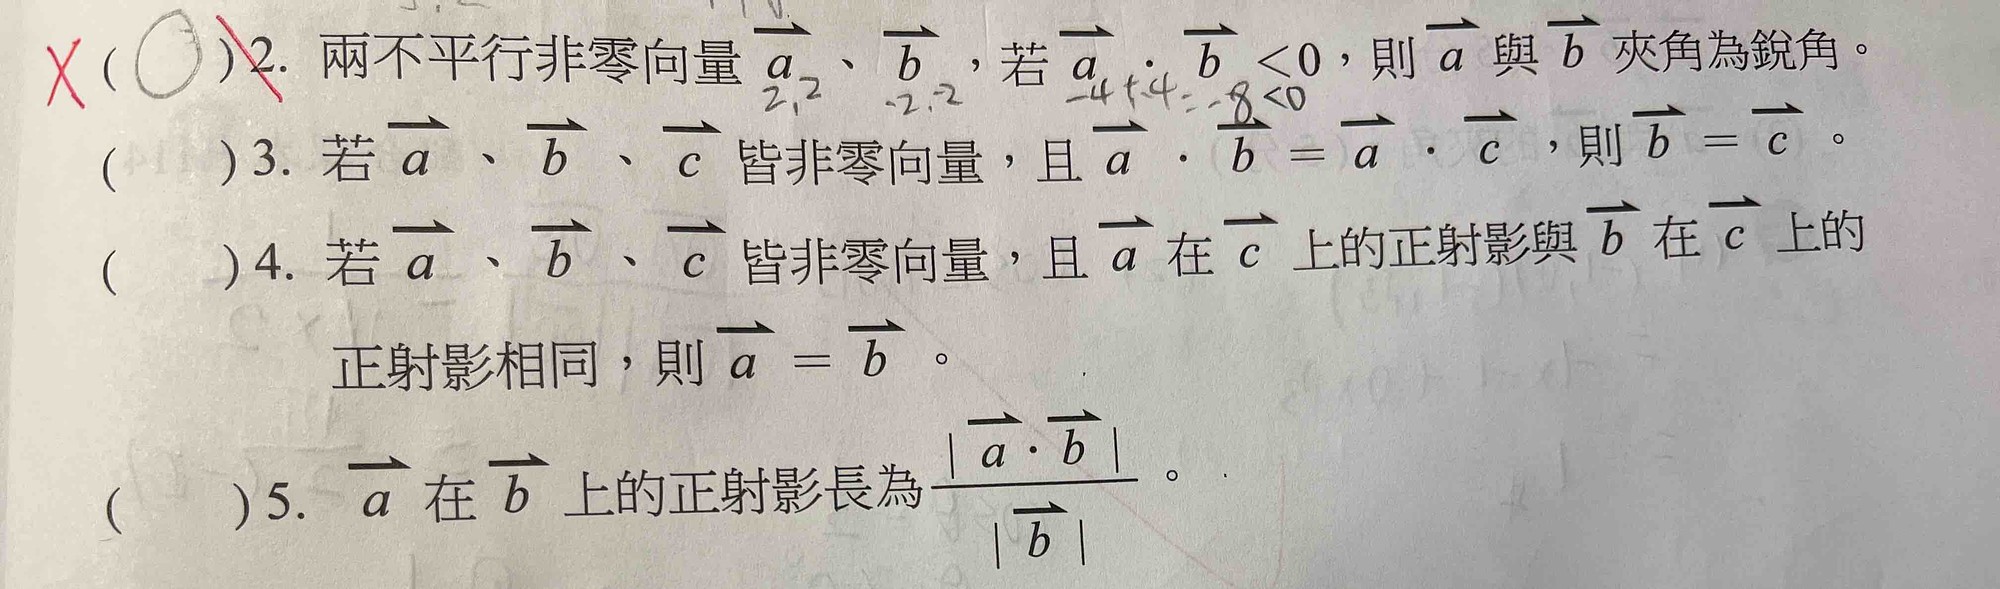 X ( O ) 2. 兩不平行非零向量 a、b,若 a · b <0,則 a 與 b 夾角為銳角。
2,2 -2,-2 -4+-4=-8<0
( ) 3. 若 a、b、c 皆非零向量,且 a · b = a · c,則 b = c。
( ) 4. 若 a、b、c 皆非零向量,且 a 在 c 上的正射影與 b 在 c 上的
正射影相同,則 a = b。
( ) 5. a 在 b 上的正射影長為 | a · b | / | b | 。